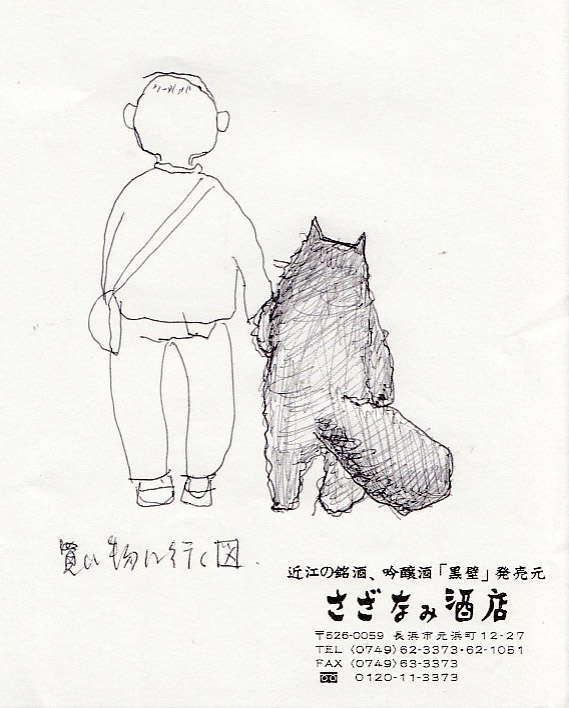 買い物に行く図.
近江の銘酒、吟醸酒「黒壁」発売元
さざなみ酒店
〒526-0059 長浜市元浜町12-27
TEL (0749)62-3373・62-1051
FAX (0749)63-3373
0120-11-3373